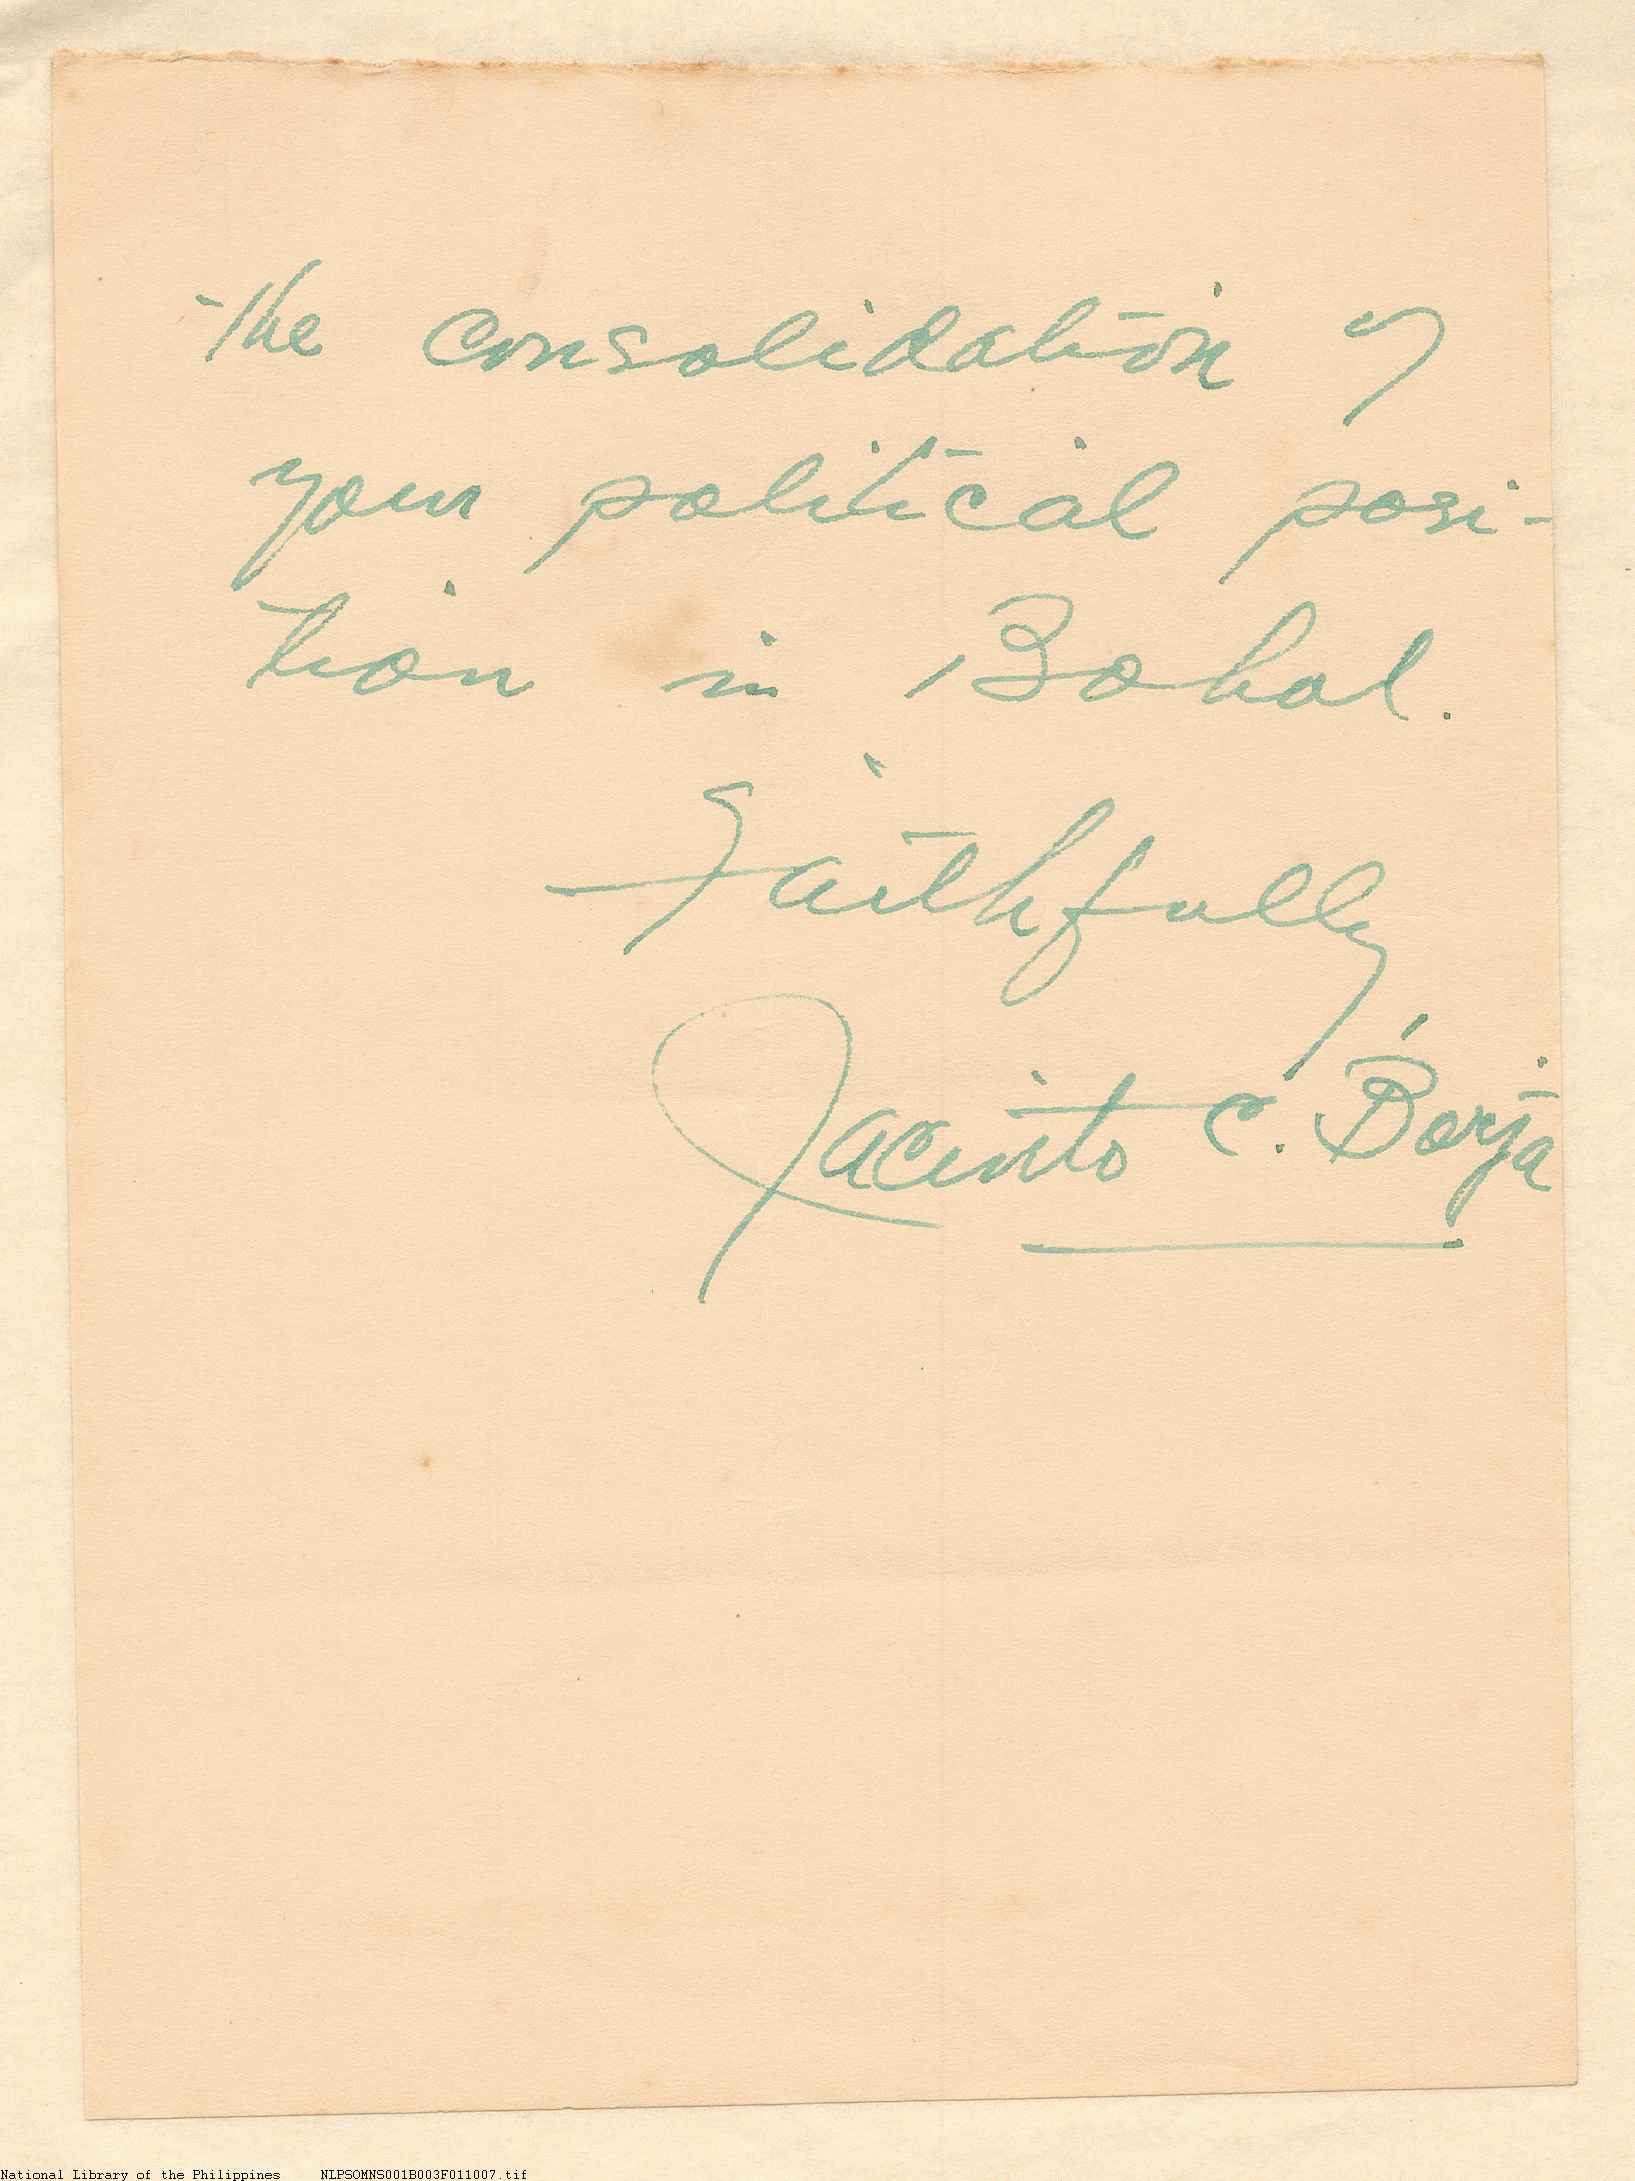 the consolidation of
your political posi-
tion in Bohol.
Faithfully,
Jacinto C. Borja
National Library of the Philippines NLPSOMNS001B003F011007.tif